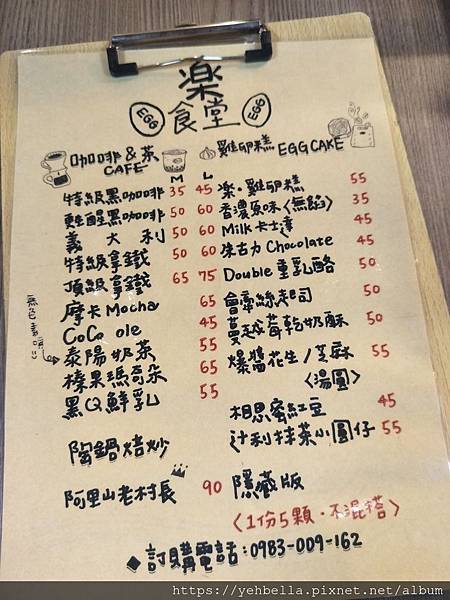 楽
EGG 食堂 EGG
咖啡&茶
CAFE
M L
特級黑咖啡 35 45
甦醒黑咖啡 50 60
義大利 50 60
特級拿鐵 50 60
頂級拿鐵 65 75
摩卡Mocha 65
CoCo ole 45
泰陽奶茶 55
榛果瑪奇朵 65
黑Q鮮乳 55
陶鍋焙炒
阿里山老村長 90
雞卵糕 EGG CAKE
楽•雞卵糕 55
香濃原味〈無餡〉 35
Milk卡士達 45
朱古力Chocolate 45
Double重乳酪 50
會牽絲起司 50
蔓越莓乾奶酥 50
爆醬花生/芝麻 55
〈湯圓〉
相思蜜紅豆 45
辻利抹茶小圓仔 55
隱藏版
〈1份5顆・不混搭〉
◆訂購電話:0983-009-162
https://yehbella.pixnet.net/album